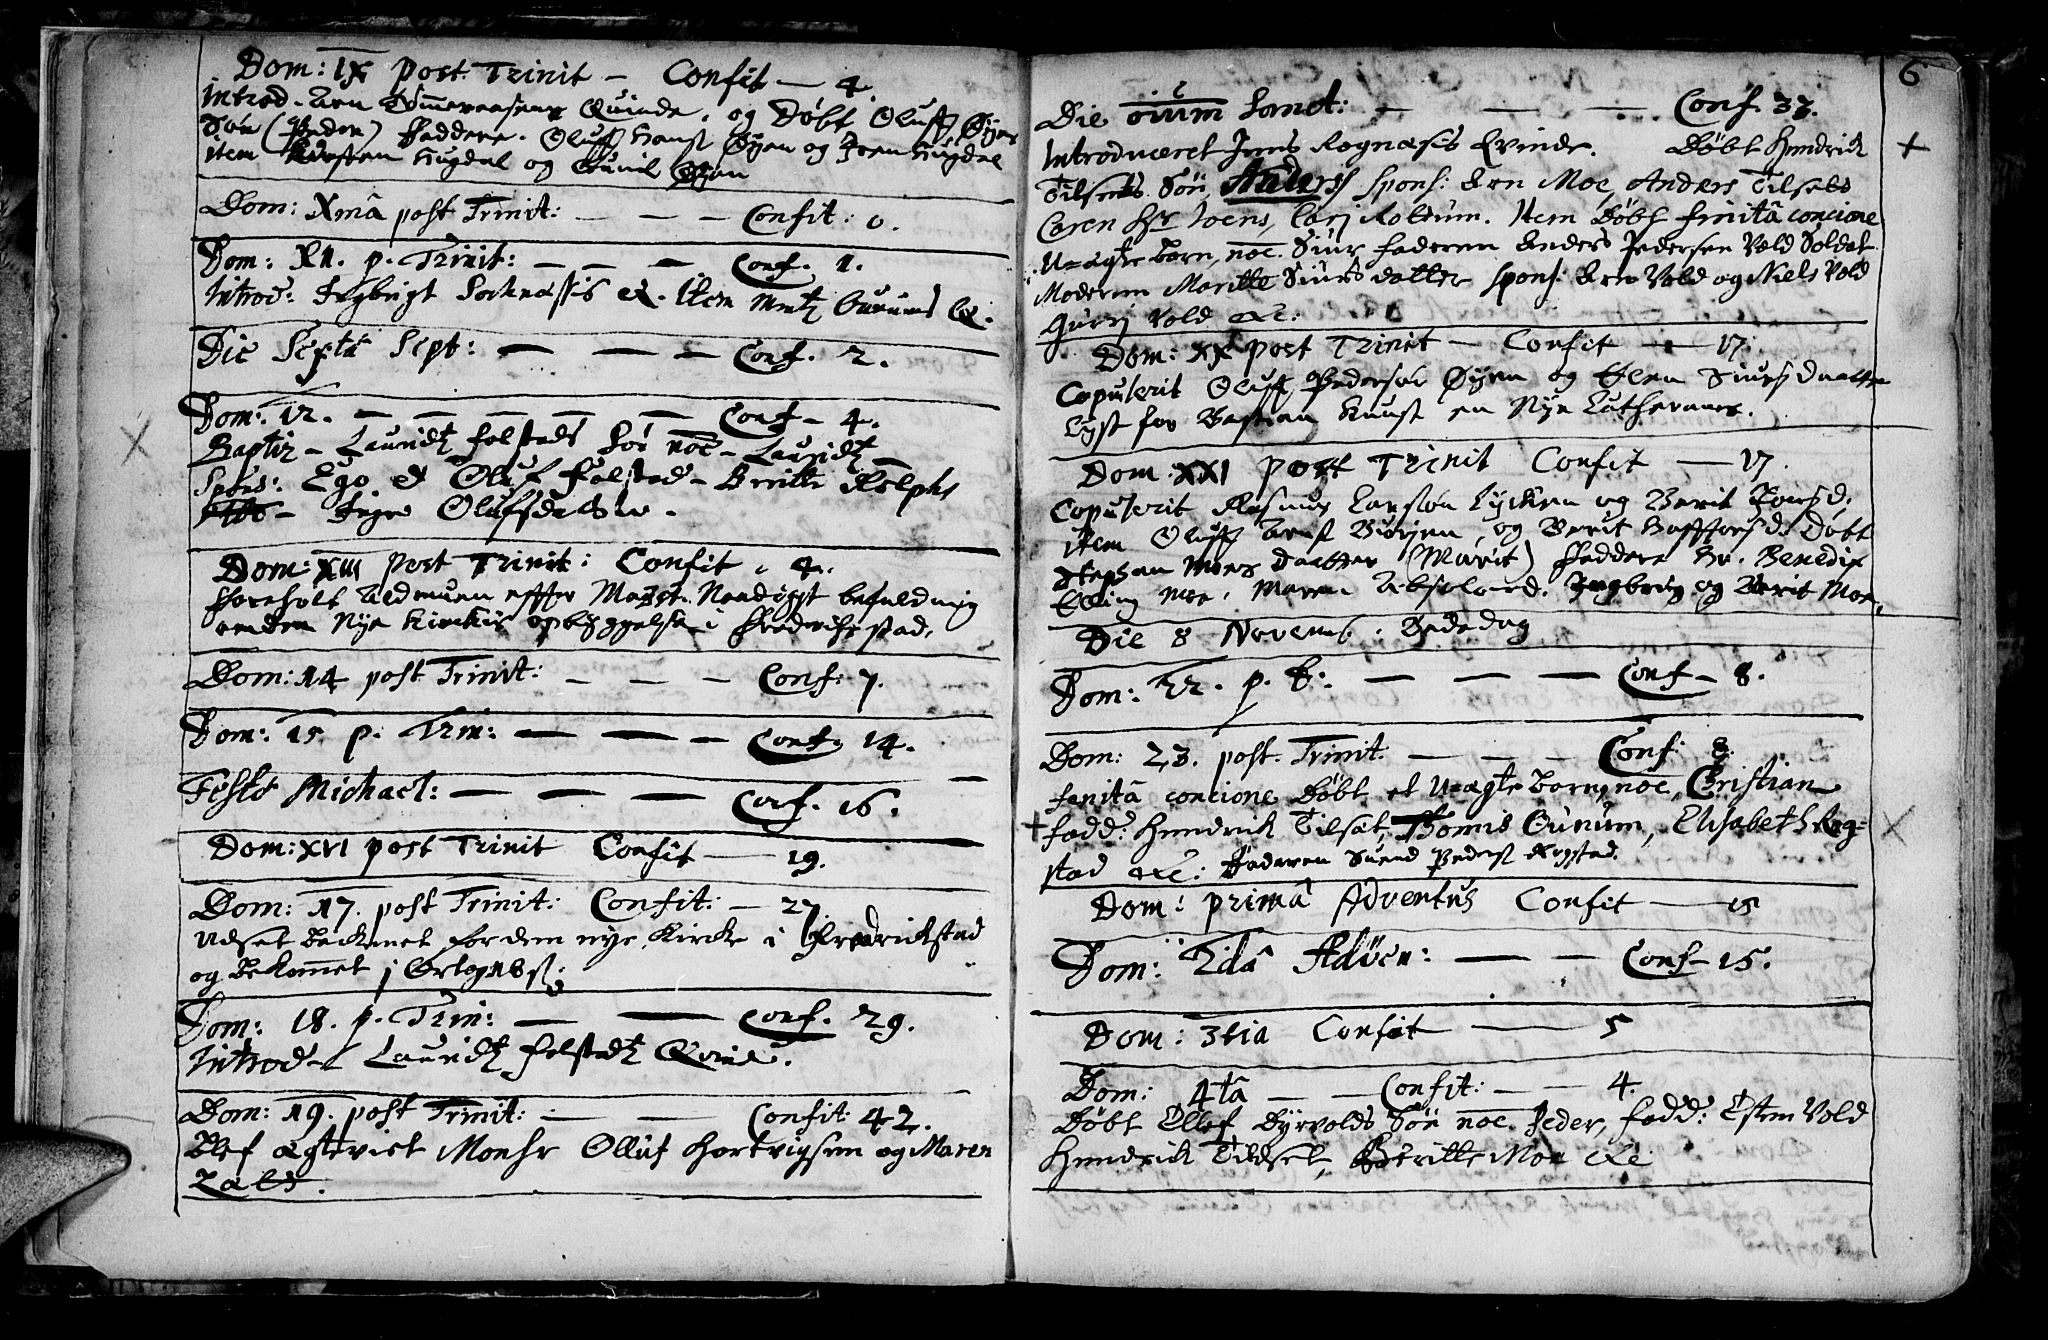 Dom: IX post Trinit — Confit — 4.
Introd. Arn Tømmeraasens Quinde. og Døbt Oluff Øyens
Søn (Peder) Faddere. Oluff Hanss Øyen og Joen Hugdal
item Kirsten Hugdal og Gunil Øyen
Dom: Xmâ post Trinit: — — — Confit: 0.
Dom: XI. p. Trinit: — — — Conf. 1.
Introd: Ingbrigt Soknæssis Q. Item
Die Sexta Sept: — — — Conf. 2.
Dom: 12. — — — — — Conf — 4.
Baptiz — Lauridtz Folstads Søn noe — Lauridtz
Spons: Ego et Oluf Folstad — Beritte Rolphs
Ingre Olufsdatter.
Dom: XIII post Trinit: Confit. 4.
Foreholt Almuen effter Mayst. Naadigst befalding
om den Nye Kirckis opbyggelse i Frederichstad.
Dom: 14 post Trinit: — — — Conf: 7.
Dom: 15 p. Trin: — — — Conf. 14.
Festo Michael: — — — Conf. 16.
Dom: XVI post Trinit Confit — 19.
Dom: 17. post Trinit: Confit: — 27.
Udset Beckenet for den nye Kircke i Fredrickstad
og bekommet j Ort
Dom: 18. p. Trin: — — Conf. 29.
Introd — Lauridtz Folstadtz Qvinde.
Dom: 19. post Trinit: — — Confit: 42.
Blef ægteviet Monsr Olluf Hartvigsen og Maren
6
Die oium Sanct: — — — Conf. 33.
Introduceret Jens Rognæsis Qvinde. Døbt Hendrick
Tilsets Søn, Anders spons: Arn Moe, Anders Tilsets
Caren Hr Joens, Carj Roldum. Item Døbt finitâ concione
Uægte Barn, noe. Siur, faderen Anders Pedersen Vold Soldat
Moderen Maritte Siurs datter spons: Arn Vold og Niels Vold
Gurrj Vold &c:
Dom: XX post Trinit — Confit — 17.
Copulerit Oluff Pedersøn Øyen og Elen Siurs Daatter
Lyst for Bastian Knust en Nye Lutheraner.
Dom: XXI post Trinit Confit — 17.
Copulerit Rasmus Larssøn Lycken og Berit Joensd.
item Oluff Arnss Burjen, og Berit Haffforsd. Døbt
Stephan Moes Daatter (Marit) Faddere Hr. Benedix
Elling Moe. Maren Absolonsd. Ingbrig og Berit Moe.
Die 8 Novemb. Bededag
Dom: 22. p. t: — — — Conf — 8.
Dom: 23. post. Trinit. — — — Conf: 8.
finitâ concione Døbt et Uægte Barn, noe, Christian
fadd: Hendrick Tilset, Thomis Gunum, Elisabeth Rog=
stad &c: Faderen Svend Pederss Rogstad.
Dom: primâ Adventus Confit — 15
Dom: 2dâ Adven: — — Conf — 15.
Dom: 3tia Confit — 5
Dom: 4tâ — — Confit: — — 4.
Døbt Ellef Dyrvolds Søn noe. Peder, fadd: Esten Vold
Hendrick Tilset, Beritte Moe &c